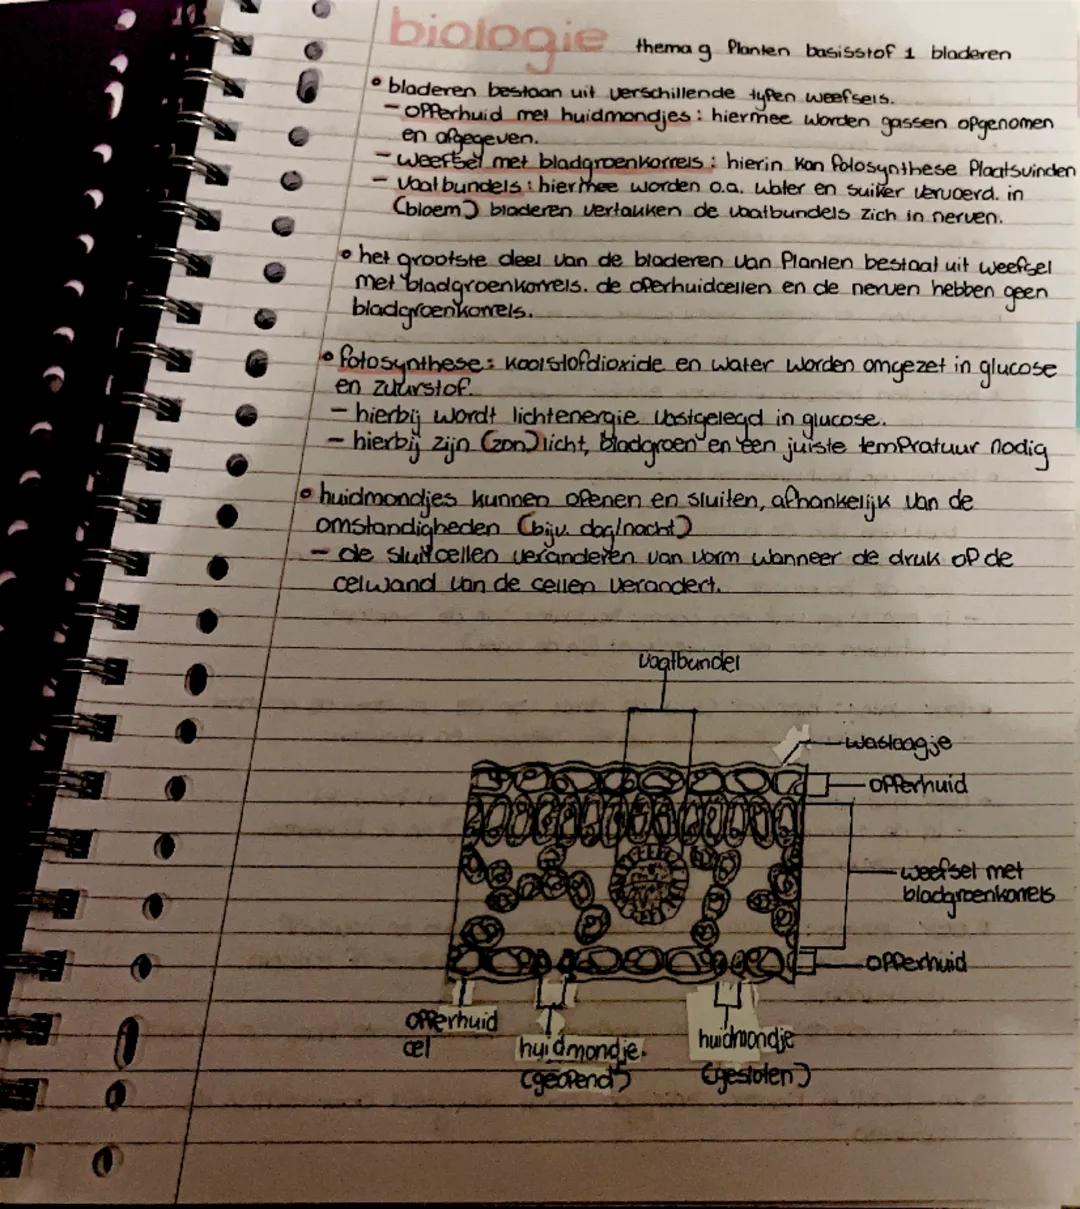 biologie thema 9 Planten basisstof 1 bladeren
• bladeren bestaan uit verschillende typen weefsels.
- opperhuid met huidmondjes: hiermee worden gassen opgenomen
en afgegeven.
- weefsel met bladgroenkorrels: hierin kan fotosynthese Plaatsvinden
- vaatbundels: hiermee worden o.a. water en suiker vervoerd. in
(bloem) bladeren vertakken de vaatbundels zich in nerven.
• het grootste deel van de bladeren van Planten bestaat uit weefsel
met bladgroenkorrels. de operhuidcellen en de nerven hebben geen
bladgroenkorrels.
• fotosynthese: koolstofdioxide en water worden omgezet in glucose
en zuurstof.
- hierbij wordt lichtenergie vastgelegd in glucose.
- hierbij zijn (zon)licht, bladgroen en een juiste tempratuur nodig
• huidmondjes kunnen openen en sluiten, afhankelijk van de
omstandigheden (bijv. dag/nacht)
- de sluitcellen veranderen van vorm wanneer de druk op de
celwand van de cellen verandert.
vaatbundel
waslaagje
opperhuid
weefsel met
bladgroenkorrels
opperhuid
opperhuid
cel
huidmondje
(geopend)
huidmondje
(gesloten)